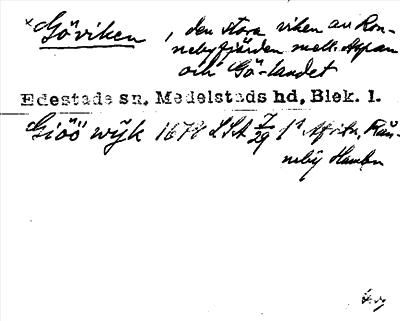 ×Göviken, den stora viken av Ron-
nebyfjärden mell. Aspan
och Gö-landet
Edestads sn, Medelstads hd, Blek. l.
Giöö wijk 1678 LSA 7/29 1¹ Afritn,
neby Hambn